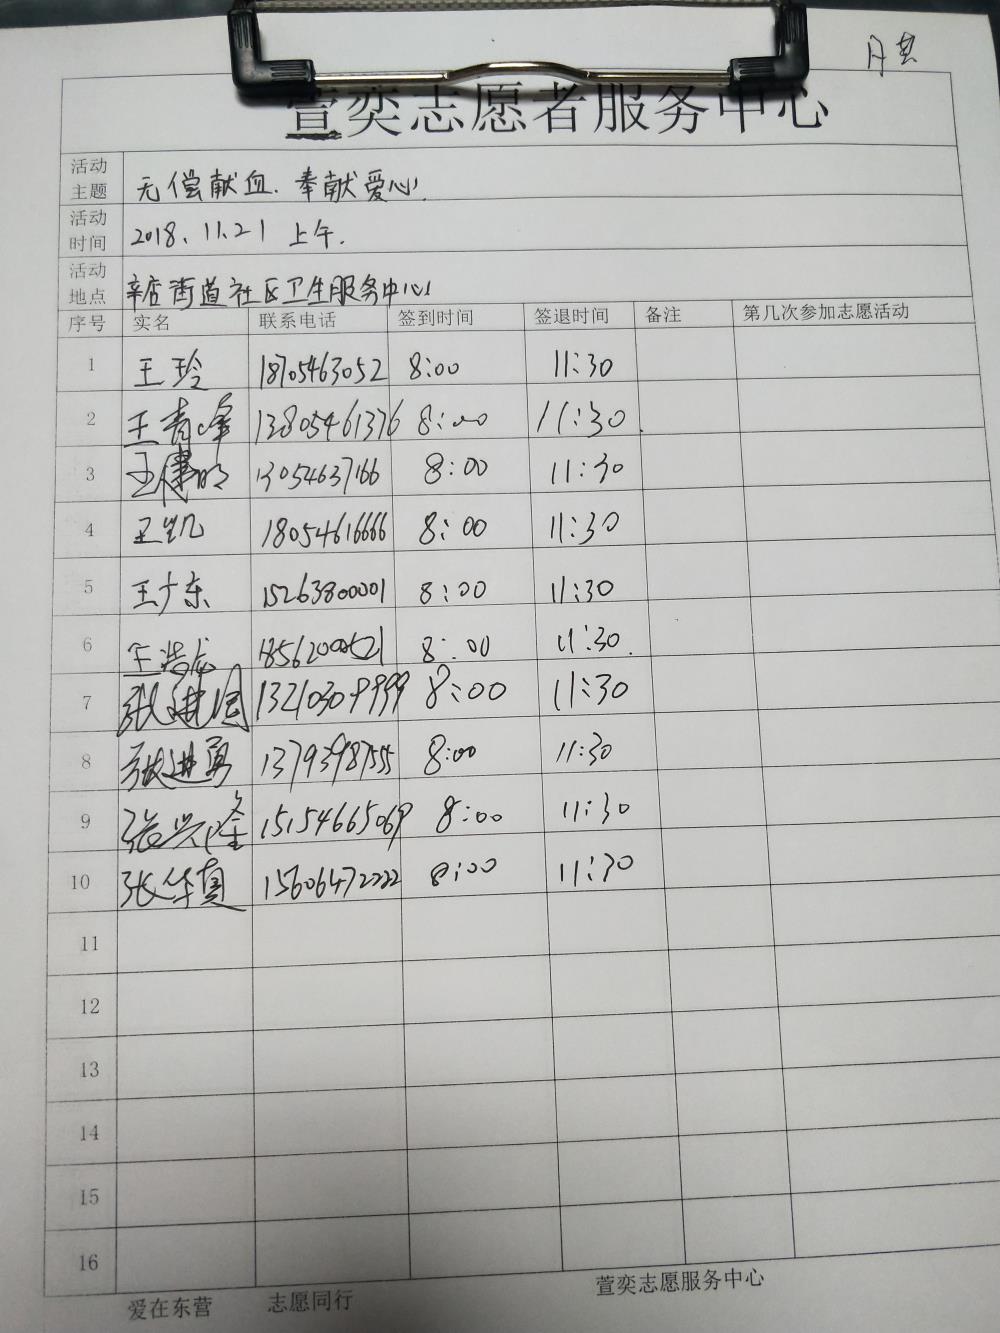 萱奕志愿者服务中心
活动主题 无偿献血.奉献爱心.
活动时间 2018.11.21 上午.
活动地点 辛店街道社区卫生服务中心
序号 实名 联系电话 签到时间 签退时间 备注 第几次参加志愿活动
1 王玲 18705463052 8:00 11:30
2 王青峰 13805461376 8:00 11:30.
3 王健明 13054637166 8:00 11:30
4 王凯 18054616666 8:00 11:30
5 王广东 15263800001 8:00 11:30
6 王浩龙 18562000521 8:00 11:30.
7 张建国 13210309999 8:00 11:30
8 张进勇 13793987555 8:00 11:30
9 张兴隆 15154665069 8:00 11:30
10 张华真 15606472222 8:00 11:30
11
12
13
14
15
16
爱在东营 志愿同行 萱奕志愿服务中心